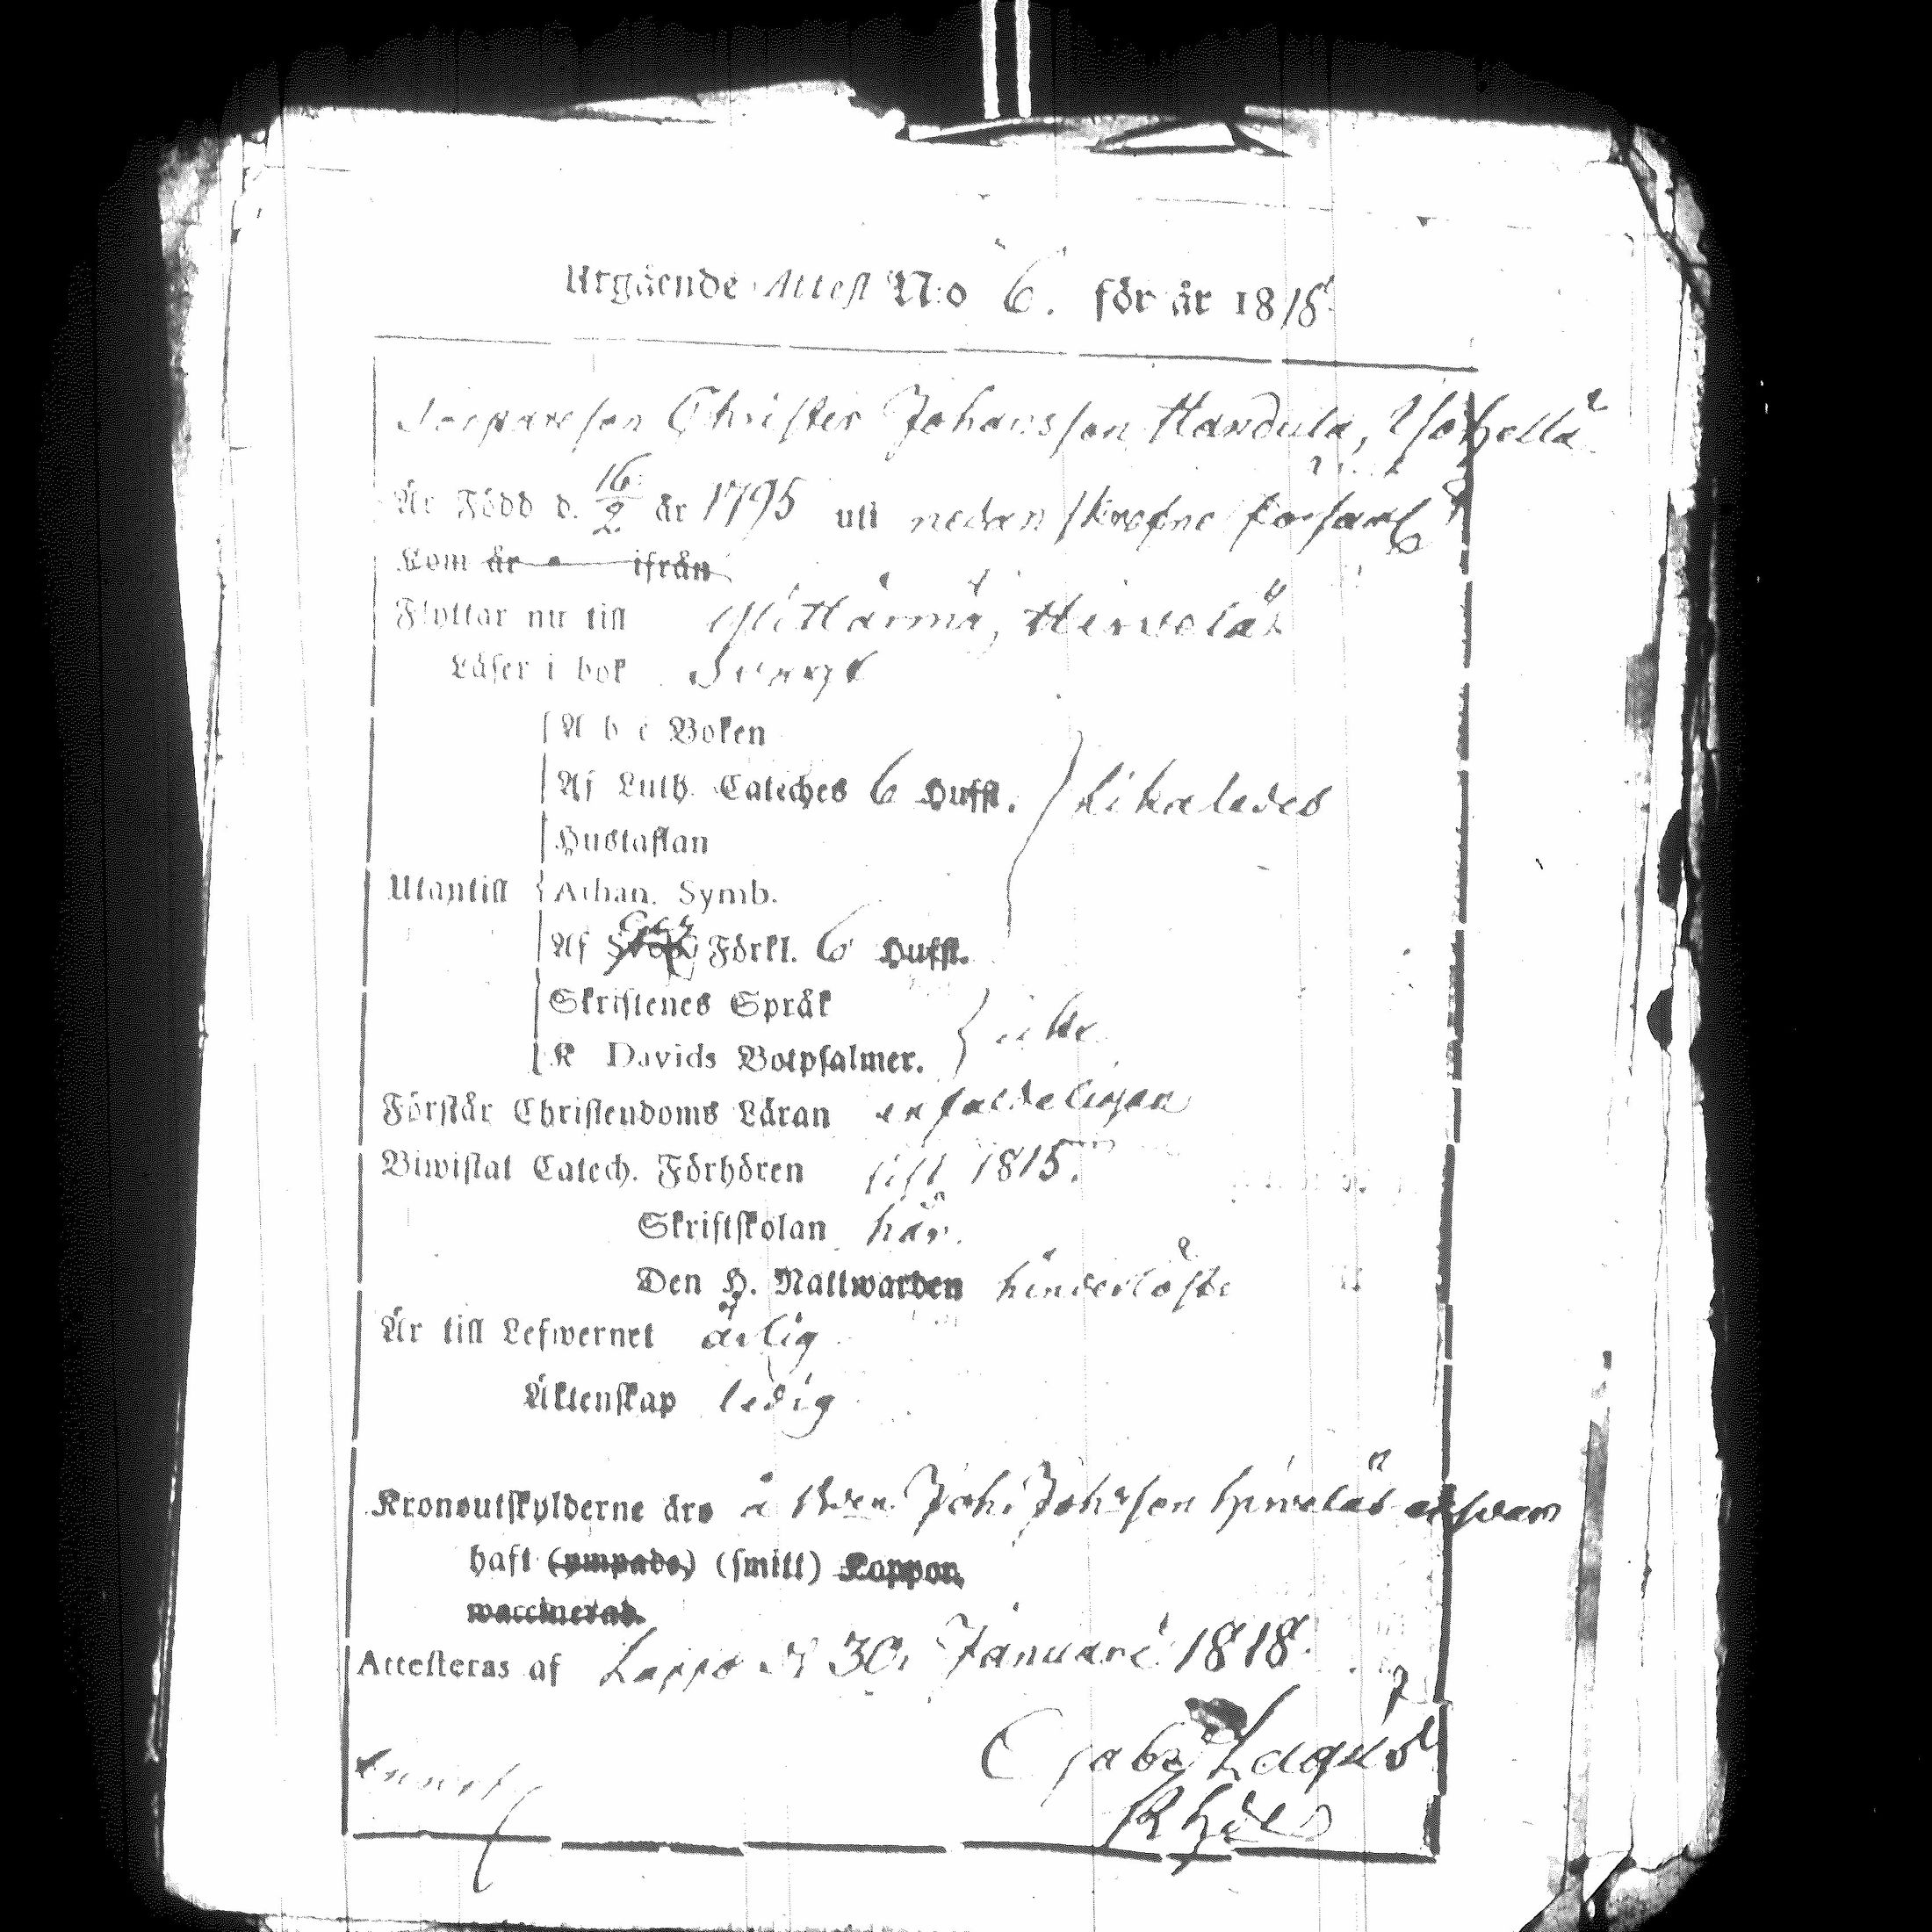 Utgående Attest N:o 6. för år 1818.
Christer Johansson Handula,
Är Född d. 16/2 år 1795 uti nedanskrefne församl
Kom år ifrån
Flyttar nu till Ylihärmä,
Läser i bok Svagt
A b c Boken
Af Luth. Cateches 6 Huffst. likaledes
Hustaflan
Utantill Athan. Symb.
Af Förkl. 6 Huffst.
Skriftenes Språk
K Davids Botpsalmer. icke
Förstår Christendoms Läran enfaldeligen
Biwistat Catech. Förhören sist 1815.
Skriftskolan här.
Den H. Nattwarden
Är till Lefwernet ärlig
Äktenskap ledig
Kronoutskylderne äro å Bden Joh: Johsson ansvar
haft (ympade) (smitt) Koppor,
waccinerad.
Attesteras af Lappo d 30. Januari 1818.
Gabr Lagus